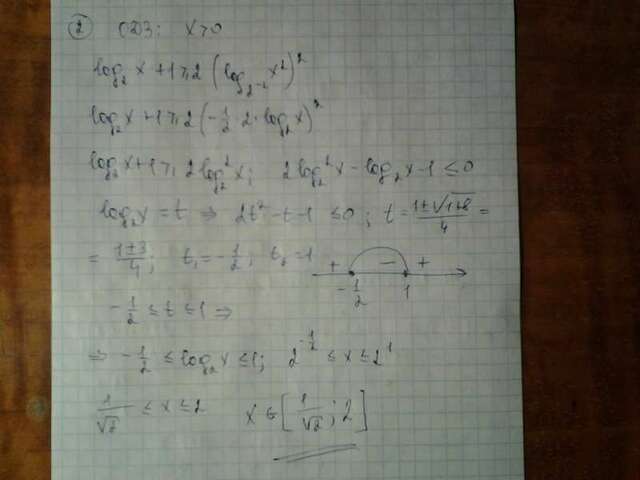 ② ОДЗ: x>0
log₂ x + 1 ⩾ 2 (log₂₋₂ x²)²
log₂ x + 1 ⩾ 2 (-1/2 · 2 · log₂ x)²
log₂ x + 1 ⩾ 2 log₂² x; 2 log₂² x - log₂ x - 1 ≤ 0
log₂ x = t ⇒ 2t² - t - 1 ≤ 0; t = (1±√(1+8))/4 =
= (1±3)/4; t₁ = -1/2; t₂ = 1 + - +
-1/2 1
-1/2 ≤ t ≤ 1 ⇒
⇒ -1/2 ≤ log₂ x ≤ 1; 2^(-1/2) ≤ x ≤ 2¹
1/√2 ≤ x ≤ 2 x ∈ [1/√2; 2]